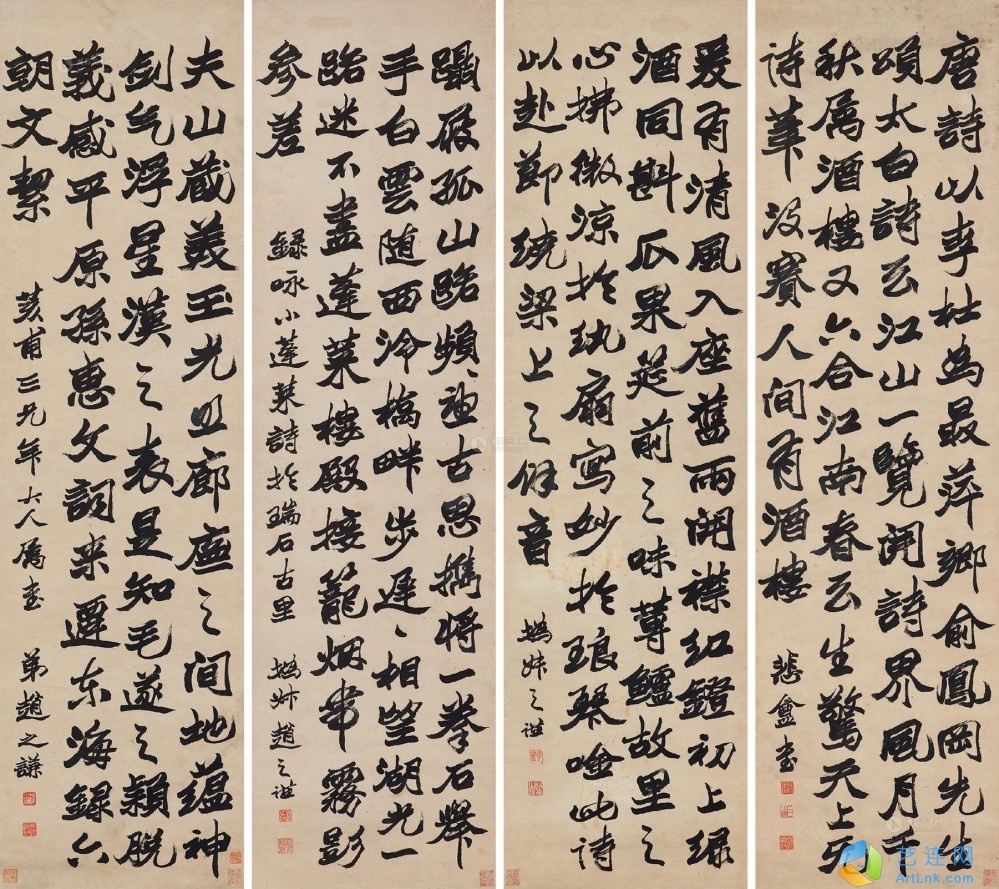 唐詩以李杜為最萍鄉俞鳳岡先生
頌太白詩云江山一覽開詩界風月千
秋屬酒樓又六合江南春云生驚天上
詩筆沒賽人間有酒樓
悲盦書
爰有清風入座舊雨開襟紅鐙初上绿
酒同斟瓜果筵前之味蓴鱸故里之
心拂微涼於紈扇寫妙於琅琴唫此詩
以赴節繞梁上之馀音
撝叔之谦
躡屐孤山路頻、迴古思攜將一拳石舉
手白雲随西冷橋畔步遲、相望湖光一
路迷不盡蓬萊樓殿接籠烟帶霧影
參差
録咏小蓬萊詩於瑞石古里
撝叔趙之谦
夫山藏美玉光照廊廡之間地蘊神
劍气浮星漢之表是知毛遂之穎脫
義感平原孫惠文詞来遷东海録六
朝文絜
荄甫三兄年大人屬書
弟趙之謙
艺连网
ArtLnk.com